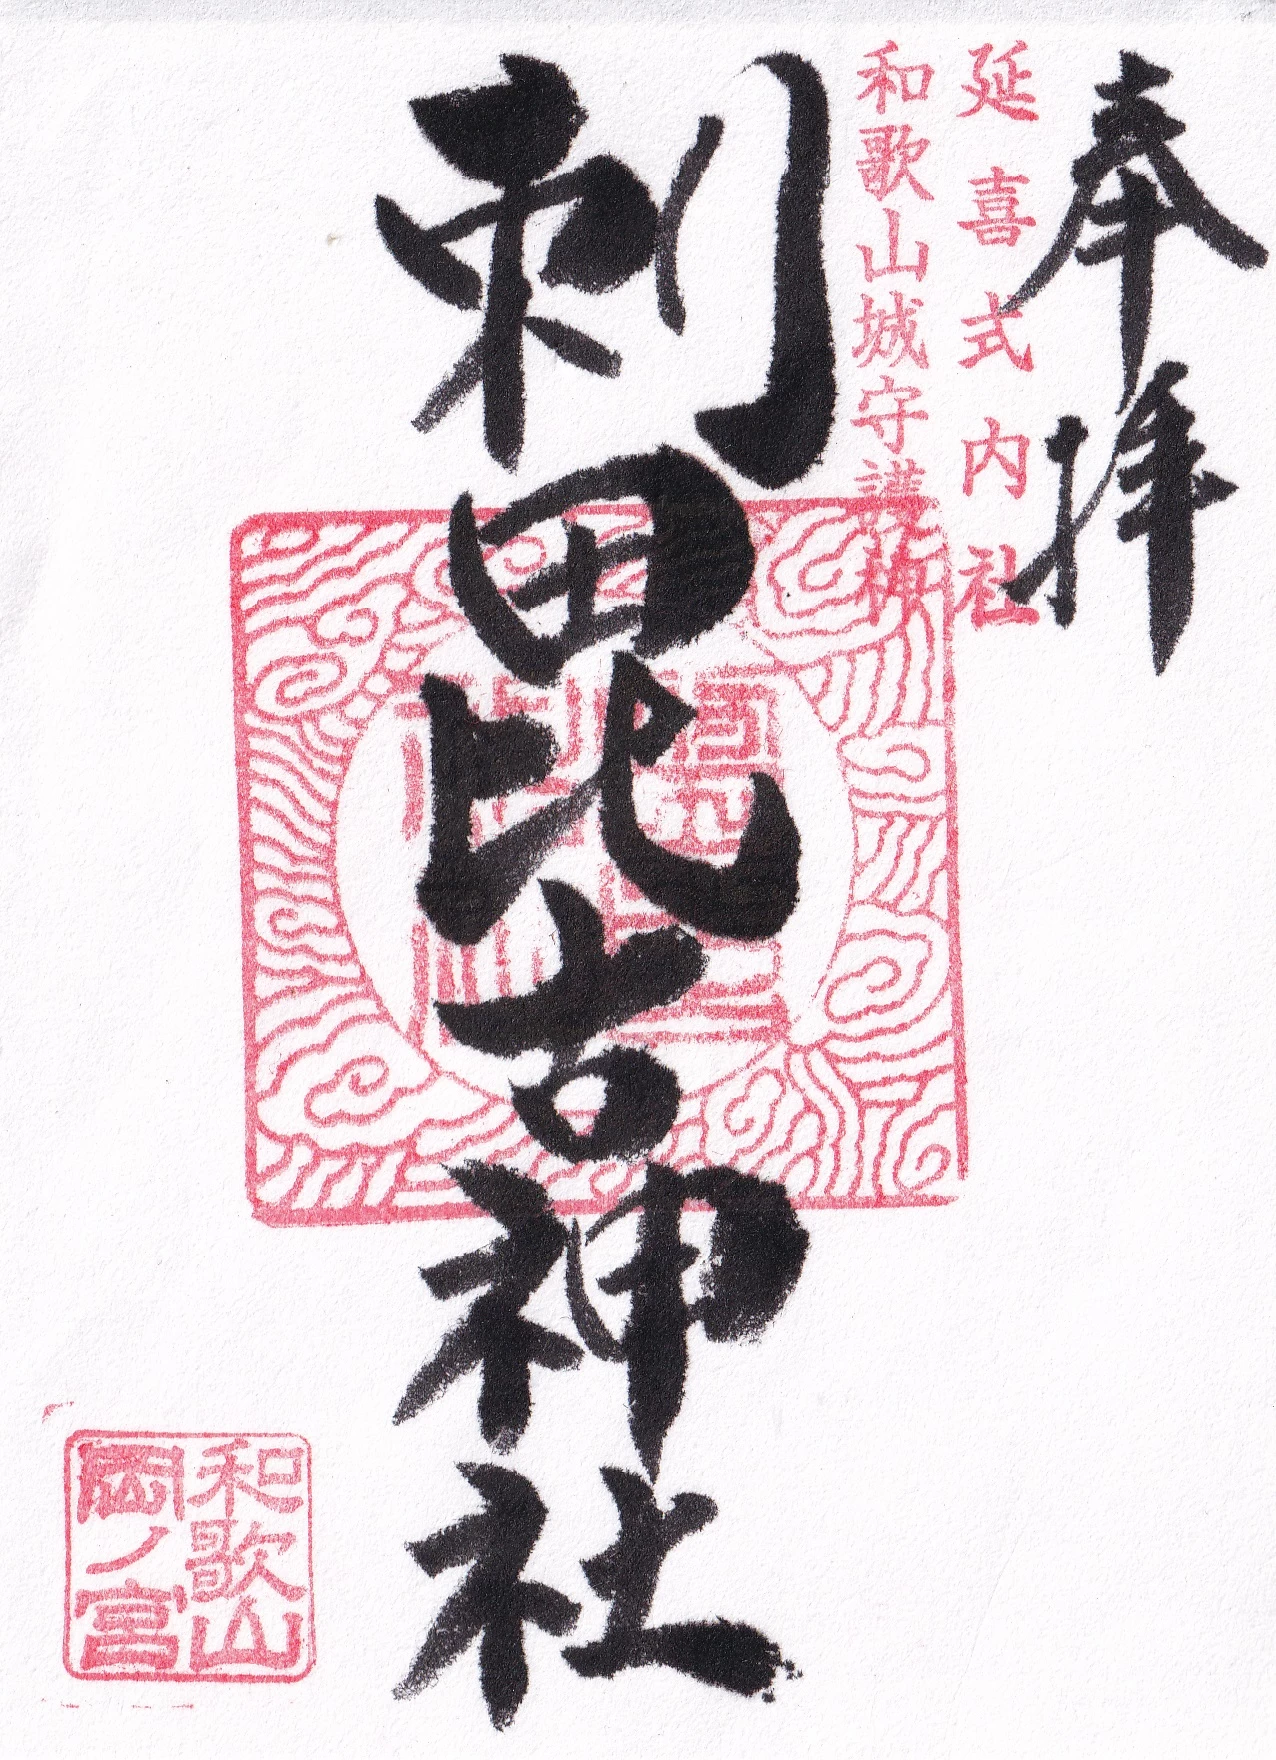 奉拝
延喜式内社
和歌山城守護神
刺田比古神社
和歌山
岡ノ宮